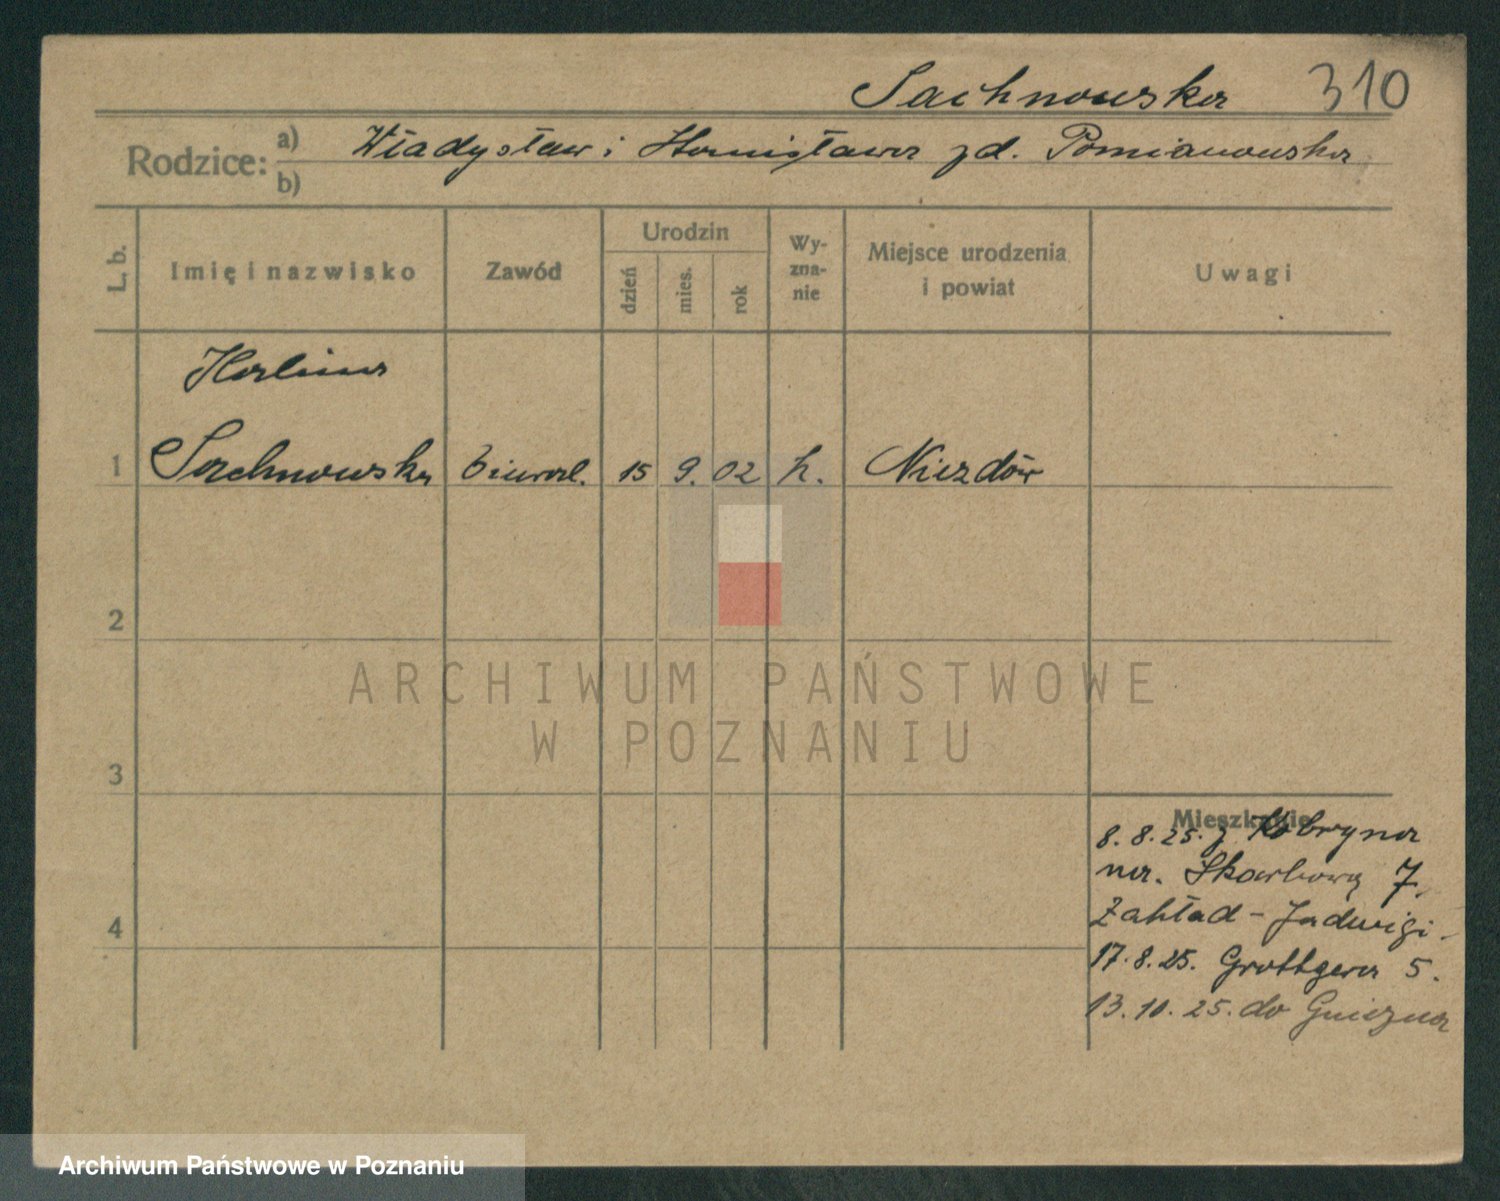 Sachnowska 310
Rodzice: a) Władysław i Stanisława zd. Pomianowska
b)
L. b. Imię i nazwisko Zawód Urodzin dzień mies. rok Wy-zna-nie Miejsce urodzenia i powiat Uwagi
Halina
1 Sachnowska biural. 15 9. 02 k. Niezdów
2
ARCHIWUM PAŃSTWOWE
W POZNANIU
3
Mieszkanie
8. 8. 25. z Kobryna
na. Skarbową 7.
Zakład - Jadwigi.
4
17. 8. 25. Grottgera 5.
13. 10. 25. do Gniezna
Archiwum Państwowe w Poznaniu